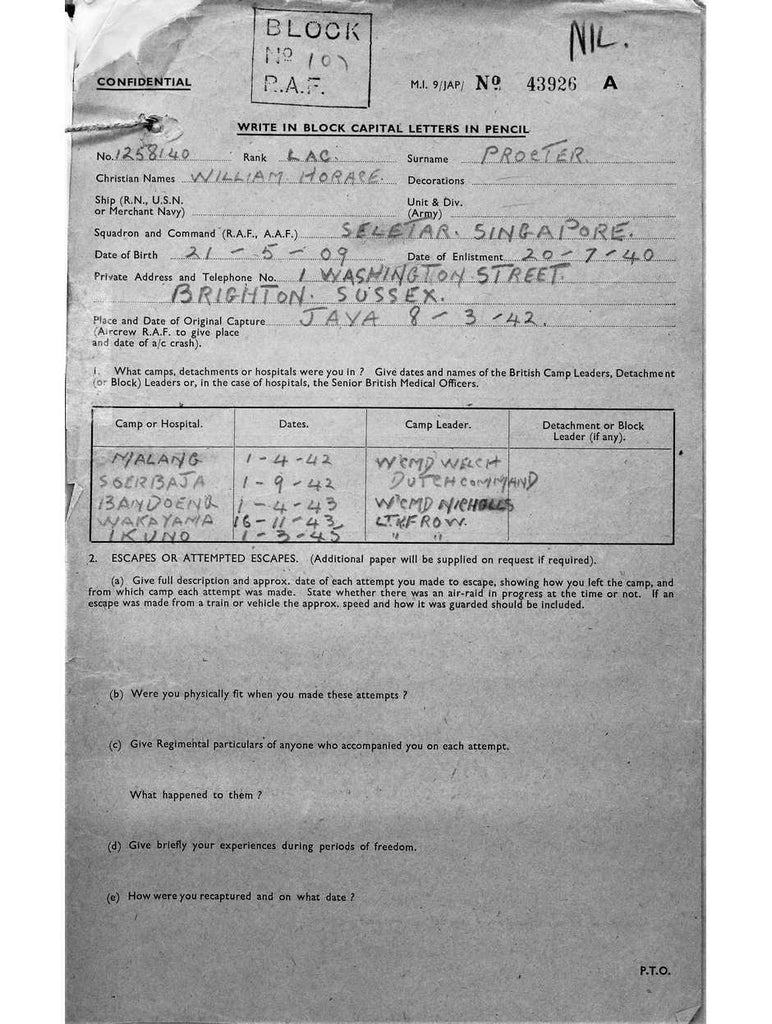 BLOCK
Nº 10
R.A.F.
NIL.
CONFIDENTIAL
M.I. 9/JAP/ Nº 43926 A
WRITE IN BLOCK CAPITAL LETTERS IN PENCIL
No. 1258140 Rank LAC. Surname PROCTER.
Christian Names WILLIAM HORACE. Decorations
Ship (R.N., U.S.N. or Merchant Navy) Unit & Div. (Army)
Squadron and Command (R.A.F., A.A.F.) SELETAR. SINGAPORE.
Date of Birth 21 - 5 - 09 Date of Enlistment 20 - 7 - 40
Private Address and Telephone No. 1 WASHINGTON STREET.
BRIGHTON. SUSSEX.
Place and Date of Original Capture JAVA 8 - 3 - 42.
(Aircrew R.A.F. to give place
and date of a/c crash).
1. What camps, detachments or hospitals were you in ? Give dates and names of the British Camp Leaders, Detachment
(or Block) Leaders or, in the case of hospitals, the Senior British Medical Officers.
Camp or Hospital. Dates. Camp Leader. Detachment or Block Leader (if any).
MALANG 1 - 4 - 42 W'CMD WELCH
SOERBAJA 1 - 9 - 42 DUTCH COMMAND
BANDOENG 1 - 4 - 43 W'CMD NICHOLLS
WAKAYAMA 16 - 11 - 43 LT. FROW.
IKUNO 1 - 3 - 45 " "
2. ESCAPES OR ATTEMPTED ESCAPES. (Additional paper will be supplied on request if required).
(a) Give full description and approx. date of each attempt you made to escape, showing how you left the camp, and
from which camp each attempt was made. State whether there was an air-raid in progress at the time or not. If an
escape was made from a train or vehicle the approx. speed and how it was guarded should be included.
(b) Were you physically fit when you made these attempts ?
(c) Give Regimental particulars of anyone who accompanied you on each attempt.
What happened to them ?
(d) Give briefly your experiences during periods of freedom.
(e) How were you recaptured and on what date ?
P.T.O.